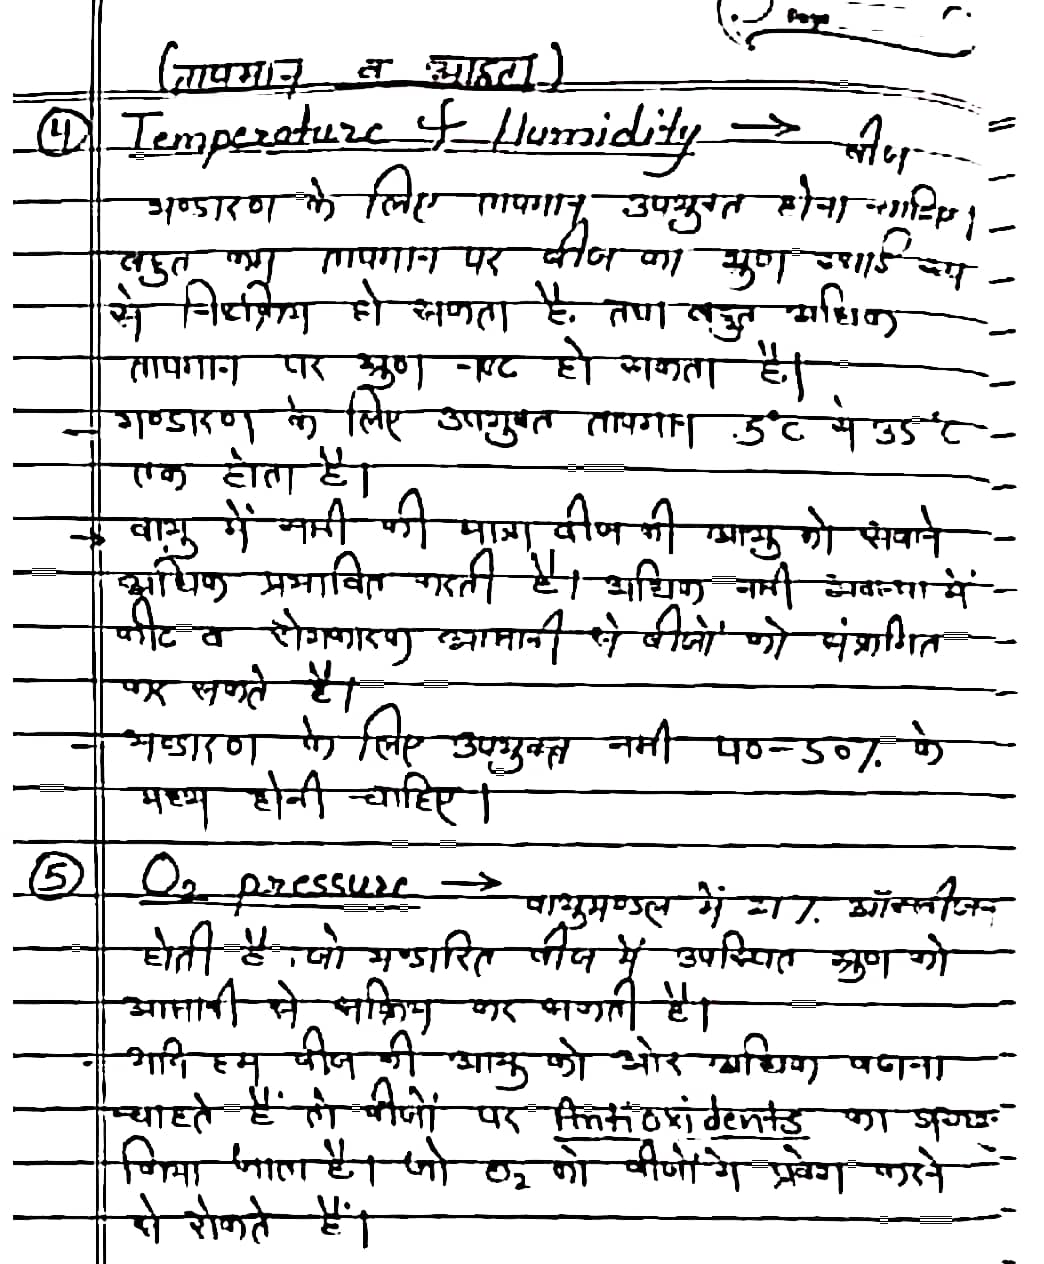 Page
(तापमान व आद्रता)
④ Temperature & Humidity → बीज
भण्डारण के लिए तापमान उपयुक्त होना चाहिए।
बहुत कम तापमान पर बीज का भ्रुण स्थाई रूप
से निष्क्रिय हो सकता है. तथा बहुत अधिक
तापमान पर भ्रुण नष्ट हो सकता है।
- भण्डारण के लिए उपयुक्त तापमान 5°C से 35°C
तक होता है।
→ वायु में नमी की मात्रा बीज की आयु को सबसे
अधिक प्रभावित करती है। अधिक नमी अवस्था में
कीट व रोगकारक आसानी से बीजों को संक्रमित
कर सकते है।
- भण्डारण के लिए उपयुक्त नमी 40-50% के
मध्य होनी चाहिए।
⑤ O₂ pressure → वायुमण्डल में 21% ऑक्सीजन
होती है, जो भण्डारित बीज में उपस्थित भ्रुण को
आसानी से सक्रिय कर सकती है।
- यदि हम बीज की आयु को ओर अधिक बढाना
चाहते हैं तो बीजों पर Antioxidents का
किया जाता है। जो O₂ को बीजों मे प्रवेश करने
से रोकते हैं।